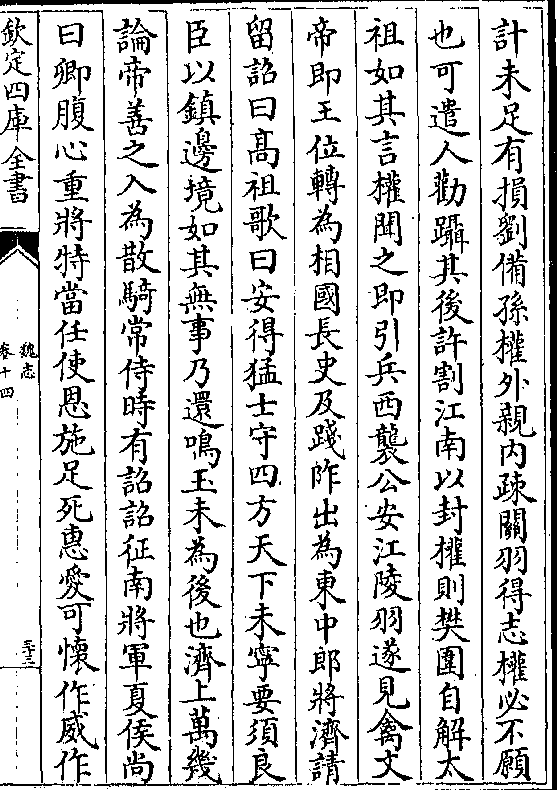 計未足有損劉備孫權外親内疎關羽得志權必不願
也可遣人勸躡其後許割江南以封權則樊圍自解太
祖如其言權聞之即引兵西襲公安江陵羽遂見禽文
帝即王位轉為相國長史及踐阼出為東中郎將濟請
留詔曰髙祖歌曰安得猛士守四方天下未寧要須良
臣以鎮邊境如其無事乃還鳴玉未為後也濟上萬幾
論帝善之入為散騎常侍時有詔詔征南將軍夏侯尚
曰卿腹心重將特當任使恩施足死惠愛可懷作威作
欽定四庫全書
魏志
卷十四
三十三